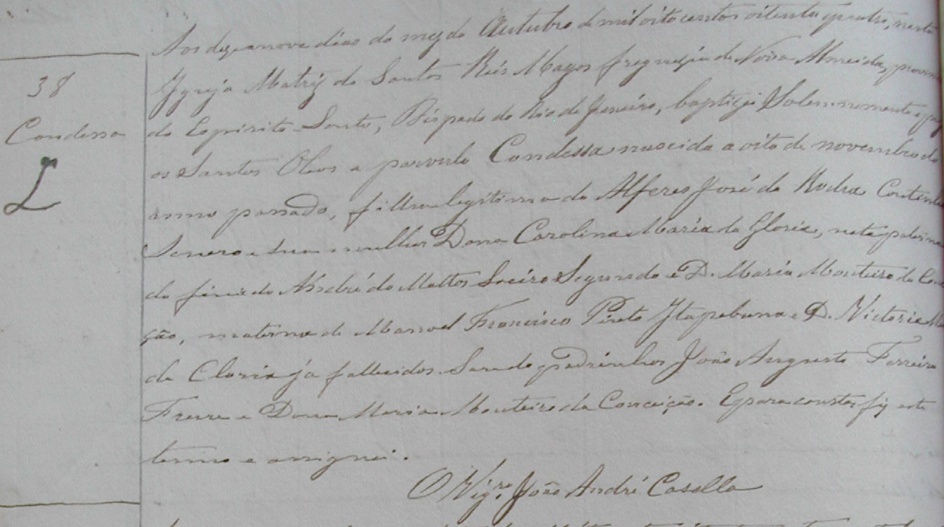 38
Condessa
L
Aos dezanove dias do mez de Outubro de mil oito centos oitenta e quatro, nesta
Igreja Matriz dos Santos Reis Magos freguezia de Nova Almeida, provin
do Espirito Santo, Bispado do Rio de Janeiro, baptizei Solemnemente e puz
os Santos Oleos a parvula Condessa nascida a oito de novembro do
anno passado, filha legitima do Alferes José da Rocha Coutinho
e sua mulher Dona Carolina Maria da Gloria, neta paterna
do finado André de Mattos Loeiro Segundo e D. Maria Monteiro da Con
ção, materna de Manoel Francisco Pinto Itapebuna e D. Victoria Ma
da Gloria já fallecidos. Sendo padrinhos João Augusto Ferreira
Freire e Dona Maria Monteiro da Conceição. E para constar fiz este
termo e assignei.
O Vigr.º João André Casella